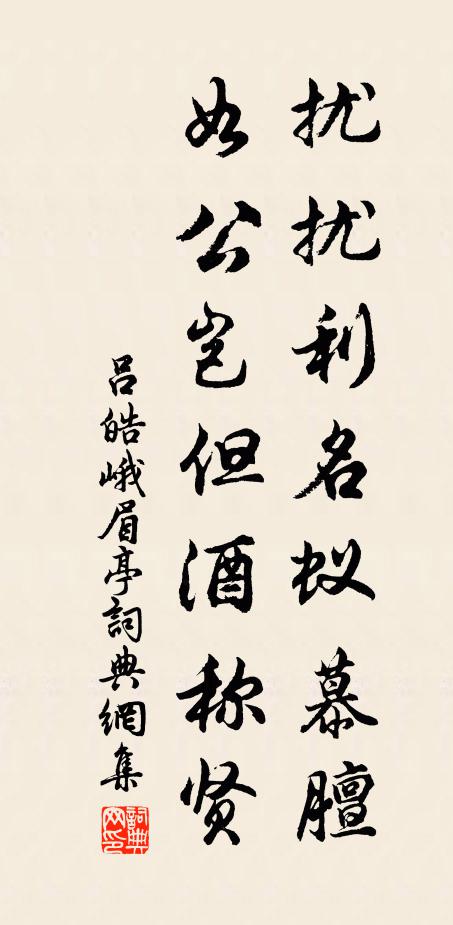 扰扰利名蚁慕膻
如公岂但酒称贤
吕皓峨眉亭詞典網集
詞典網印